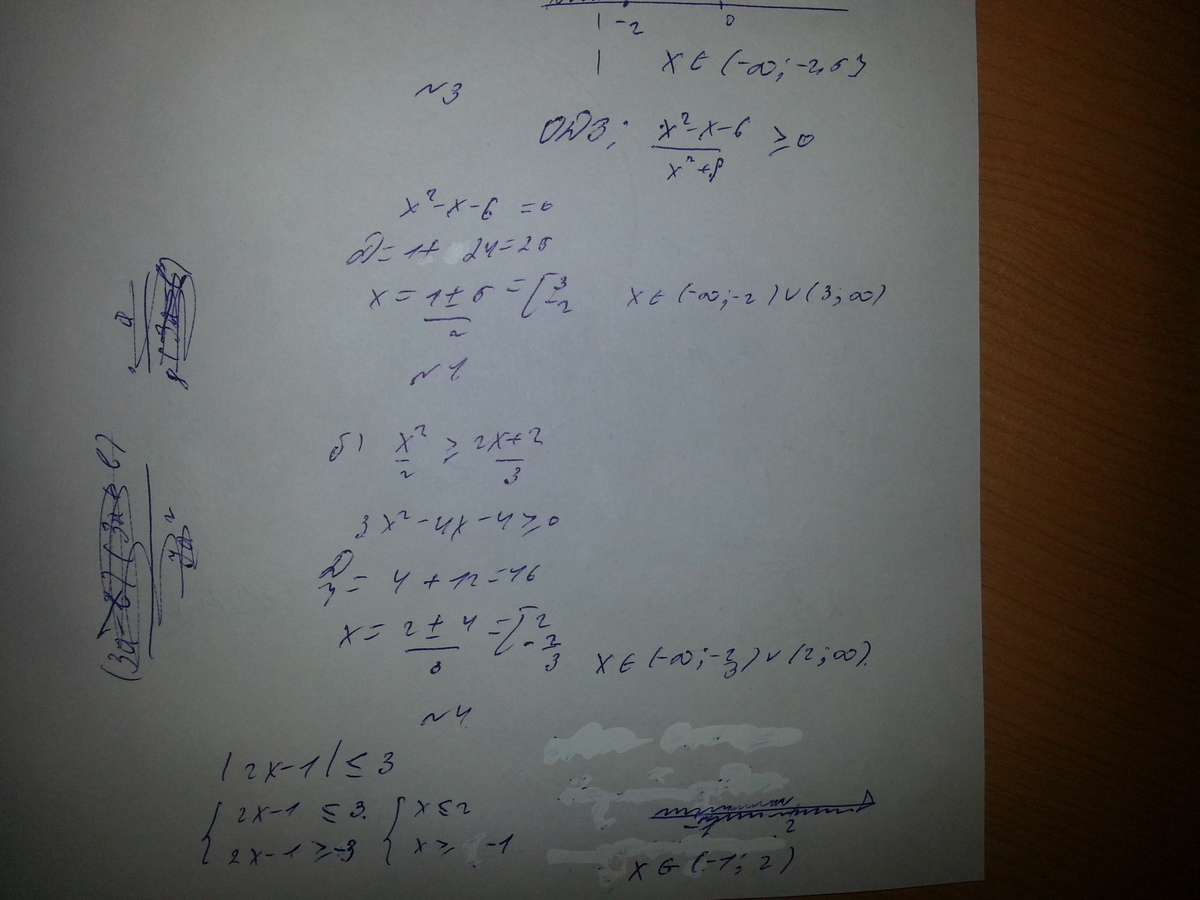 -2 0
x ∈ (-∞; -2,5]
№3
ОДЗ: x²-x-6/x²+9 ≥ 0
x²-x-6 = 0
D = 1+ 24 = 25
x = 1±5/2 = [3 -2 x ∈ (-∞; -2) ∪ (3; ∞)
№1
б) x²/2 ≥ 2x+2/3
3x²-4x-4 ≥ 0
= 4+12 = 16
x = 2±4/3 = [2 -2/3 x ∈ (-∞; -2/3) ∪ (2; ∞).
№4
|2x-1| ≤ 3
{2x-1 ≤ 3 {x ≤ 2
2x-1 ≥ -3 x ≥ -1
-1 2
x ∈ (-1; 2)